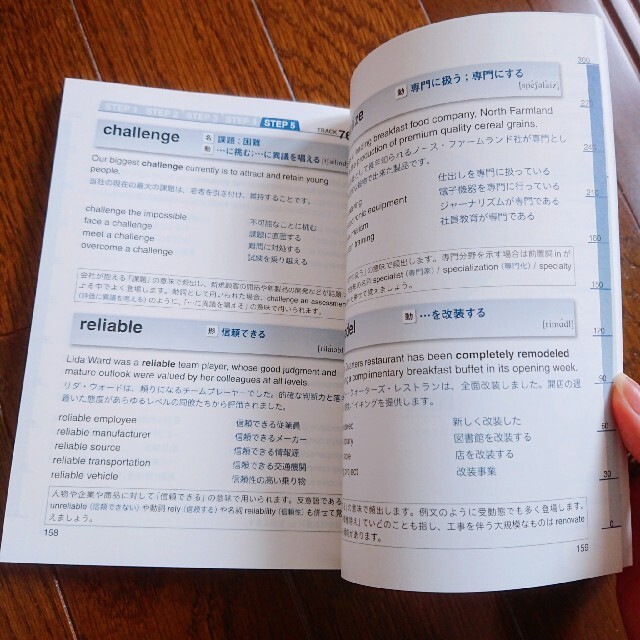 STEP 1 STEP 2 STEP 3 STEP 4 STEP 5
TRACK 76
challenge
名 課題；困難
動 …に挑む;…に異議を唱える
Our biggest challenge currently is to attract and retain young
people.
当社の現在の最大の課題は、若者を引き付け、維持することです。
challenge the impossible 不可能なことに挑む
face a challenge 課題に直面する
meet a challenge 難問に対処する
overcome a challenge 試練を乗り越える
会社が抱える「課題」の意味で頻出し、新規顧客の開拓や新製品の開発などが話題
よる中でよく登場します。動詞として用いられた場合、challenge an assessment
(評価に異議を唱える) のように、「…に異議を唱える」の意味で用いられます。
reliable
形 信頼できる
Lida Ward was a reliable team player, whose good judgment and
mature outlook were valued by her colleagues at all levels.
リダ・ウォードは、頼りになるチームプレーヤーでした。的確な判断力と落ち
着いた態度があらゆるレベルの同僚たちから評価されました。
reliable employee 信頼できる従業員
reliable manufacturer 信頼できるメーカー
reliable source 信頼できる情報源
reliable transportation 信頼できる交通機関
reliable vehicle 信頼性の高い乗り物
人物や企業や商品に対して「信頼できる」の意味で用いられます。反意語である
unreliable (信頼できない) や動詞 rely (信頼する) や名詞 reliability (信頼性) も併せて覚
えましょう。
158
動 専門に扱う；専門にする
breakfast food company, North Farmland
production of premium quality cereal grains.
ノース・ファームランド社が専門とし
で出来た製品です。
仕出しを専門に扱っている
電子機器を専門に行っている
ジャーナリズムが専門である
training 社員教育が専門である
の意味で頻出します。専門分野を示す場合は前置詞 in が
specialist (専門家) / specialization (専門化) / specialty
動 …を改装する
restaurant has been completely remodeled
a complimentary breakfast buffet in its opening week.
ウォーターズ・レストランは、全面改装しました。開店の週
バイキングを提供します。
新しく改装した
図書館を改装する
店を改装する
project 改装事業
意味で頻出します。例文のように受動態でも多く登場します。
工事を伴う大規模なものは renovate
があります。
159
300
270
240
210
170
90
60
30
0